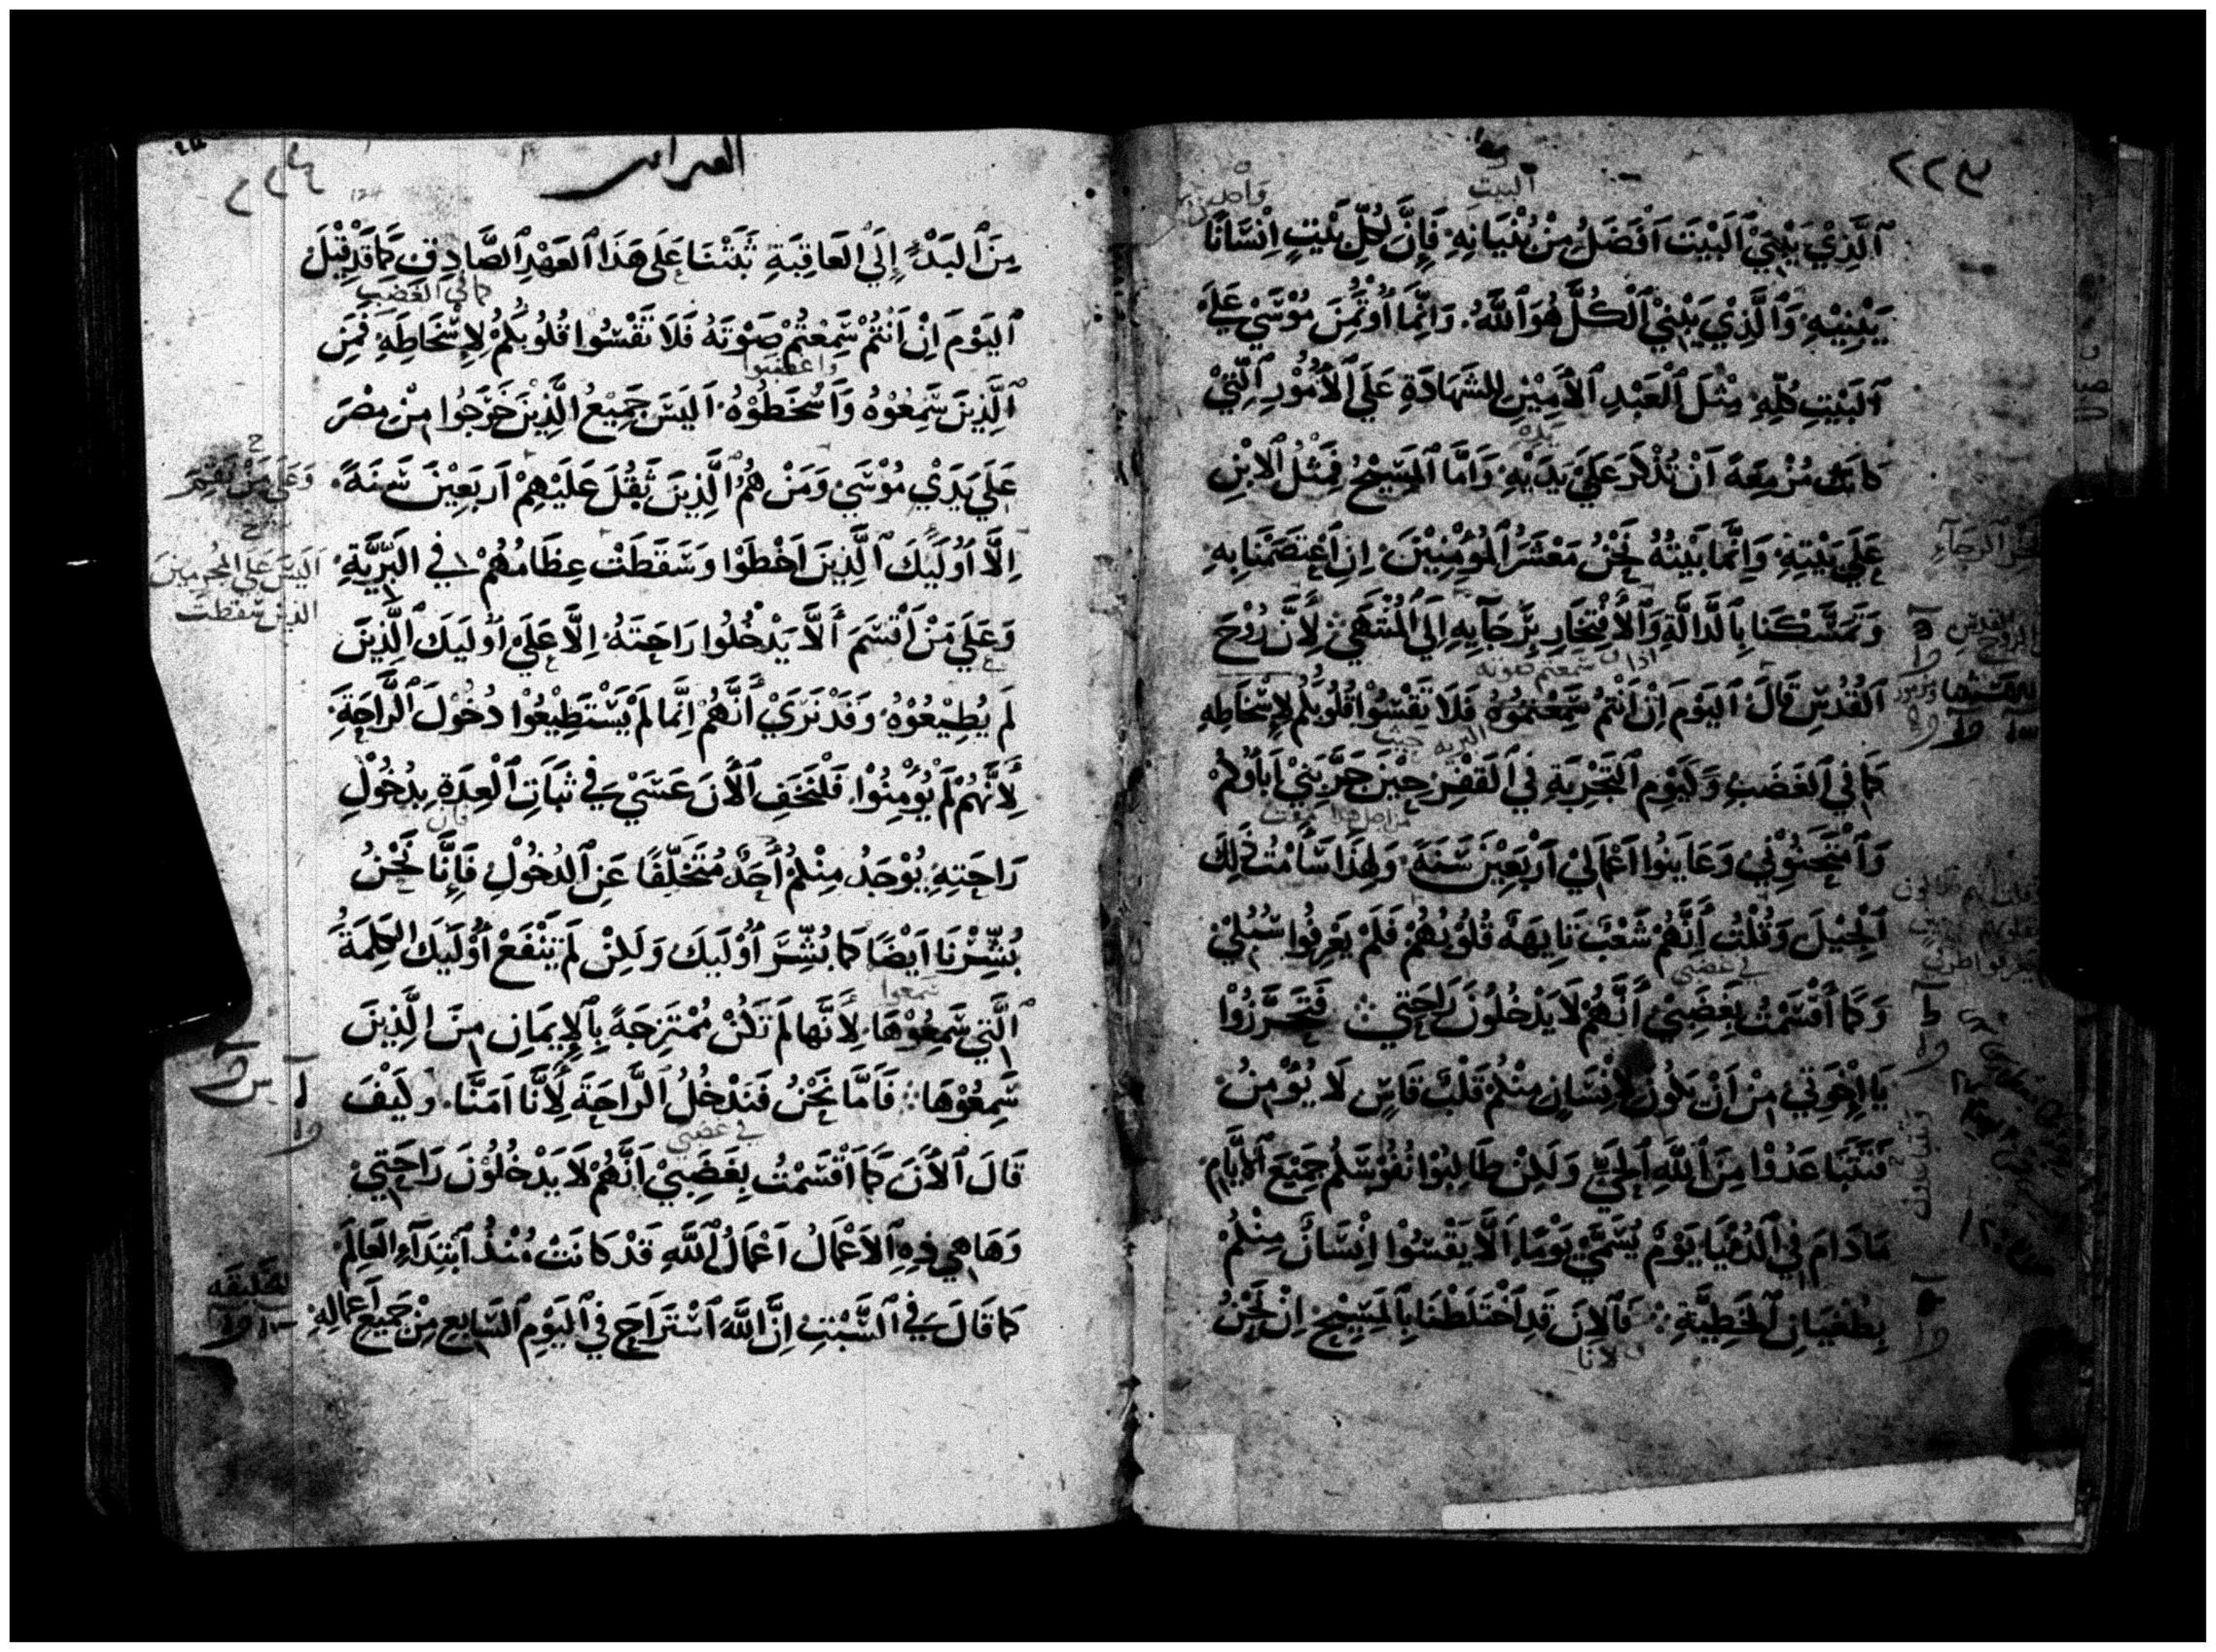 البيت
ٱلَّذِيْ يَبْنِيْ ٱلبَيْتَ اَفْضَلُ مِنْ بُنْيَانِهِ فَإِنَّ لِكُلِّ بَيْتٍ اِنْسَانًا
يَبْنِيْهِ وَٱلَّذِيْ يَبْنِيْ ٱلْكُلَّ هُوَ ٱللَّهُ. وَاِنَّمَا أُوْتُمِنَ مُوْسَيْ عَلَيْ
ٱلبَيْتِ كُلِّهِ مِثْلَ ٱلْعَبْدِ ٱلأَمِيْنِ لِلشَهَادَةِ عَلَي ٱلأُمُوْرِ ٱلَّتِيْ
كَانَتْ مُزْمِعَةً اَنْ تُذْكَرَ عَلَيْ يَدَيْهِ وَاَمَّا ٱلمَسِيْحُ فَمِثْلُ ٱلابْنِ
عَلَي بَيْتِهِ وَاِنَّمَا بَيْتُهُ نَحْنُ مَعْشَرُ ٱلمُؤمِنِيْنَ. اِنِ ٱعْتَصَمْنَا بِهِ
وَتَمَسَّكْنَا بِٱلدَّالَّةِ وَٱلأفْتِخَارِ بِرَجَآيِهِ اِلَي ٱلْمُنْتَهَيْ لِأَنَّ رُوْحَ
اذا سمعتم صوته
ٱلقُدُسِ قَالَ ٱليَوْمَ اِنْ اَنْتُمْ سَمِعْتُمُوْهُ فَلَا تَقْسُوْا قُلُوْبُكُم لِإِسْخَاطِهِ
البريه حيث
كَمَا فِي ٱلغَضَبِ وَكَيَوْمِ ٱلتَجْرِبَةِ فِي ٱلقَفْرِ حِيْنَ جَرَّبَنِيْ اَبَاؤُكُمْ
من اجل هذا مقت
وَٱمْتَحَنُوْنِي وَعَايَنُوا اَعْمَالِيْ اَرْبَعِيْنَ سَنَةً وَلِهَذَا سَأَمْتُ ذَلِكَ
ٱلْجِيْلَ وَقُلْتُ أَنَّهُمْ شَعْبٌ تَايِهَةٌ قُلُوْبُهُمْ فَلَمْ يَعْرِفُوا سُبُلِيْ
في غضبي
وَكَمَا أَقْسَمْتُ بِغَضَبِيْ أَنَّهُمْ لَا يَدْخُلُوْنَ رَاحَتِي فَتَحَرَّزُوْا
يَا اِخْوَتِي مِنْ اَنْ يَكُوْنَ لِإنْسَانٍ مِنْكُمْ قَلْبٌ قَاسٍ لَا يُؤْمِنُ
فَتَتَبَاعَدُوْا مِنَ ٱللَّهِ ٱلْحَيِّ وَلَكِنْ طَالِبُوْا نُفُوْسَكُمْ جَمِيْعَ ٱلأَيَّامِ
مَا دَامَ فِي ٱلدُنْيَا يَوْمٌ يُسَمَّيْ يَوْمًا اَلَّا يَقْسُوْا اِنْسَانٌ مِنْكُمْ
بِطُغْيَانِ ٱلخَطِيَّةِ فَٱلاَنَ قَدِ ٱخْتَلَطْنَا بِٱلمَسِيْحِ اِنْ نَحْنُ
لانا
مِنَ ٱلبَدْءِ إِلَي العَاقِبَةِ ثَبَتْنَا عَلَى هَذَا ٱلعَهْدِ ٱلصَّادِقِ كَمَا قَدْ قِيْلَ
كما في الغضب
ٱليَوْمَ اِنْ اَنْتُمْ سَمِعْتُمْ صَوْتَهُ فَلَا تَقْسُوا قُلُوبُكُمْ لِإِسْخَاطِهِ فَمَنِ
واغضبوا
ٱلَّذِيْنَ سَمِعُوْهُ وَاَسْخَطُوْهُ اَلَيْسَ جَمِيْعُ ٱلَّذِيْنَ خَرَجُوا مِنْ مِصْرَ
عَلَي يَدَيْ مُوْسَيْ وَمَنْ هُمُ ٱلَّذِيْنَ ثَقُلَ عَلَيْهِمْ اَرْبَعِيْنَ سَنَةً
اِلَّا أُوْلَيِكَ ٱلَّذِيْنَ اَخْطَوْا وَسَقَطَتْ عِظَامُهُمْ فِي ٱلبَرِّيَّةِ
اليس علي المجرمين
الذين سقطت
وَعَلَي مَنْ اَقْسَمَ أَلَّا يَدْخُلُوا رَاحَتَهُ اِلَّا عَلَيْ أُوْلَيِكَ ٱلَّذِيْنَ
لَمْ يُطِيْعُوْهُ وَقَدْ نَرَيْ أَنَّهُمْ اِنَّمَا لَمْ يَسْتَطِيْعُوْا دُخُوْلَ ٱلرَّاحَةِ
لِأَنَّهُمْ لَمْ يُؤْمِنُوْا. فَلْنَخَفِ ٱلأَنَ عَسَيْ فِي ثَبَاتِ ٱلْعِدَةِ بِدُخُوْلِ
رَاحَتِهِ يُوْجَدُ مِنْكُمْ أَحَدٌ مُتَخَلِّفًا عَنِ ٱلدُخُوْلِ فَإِنَّا نَحْنُ
بُشِّرْنَا اَيْضًا كَمَا بُشِّرَ أُوْلَيِكَ وَلَكِنْ لَمْ يَنْفَعْ أُوْلَيِكَ الكَلِمَةُ
سمعوا
ٱلَّتِي سَمِعُوْهَا لِأَنَّها لَمْ تَكُنْ مُمْتَزِجَةً بِٱلإِيمَانِ مِنَ ٱلَّذِيْنَ
سَمِعُوْهَا فَاَمَّا نَحْنُ فَنَدْخُلُ ٱلرَّاحَةَ لِأَنَّا اَمَنَّا. وَكَيْفَ
في غضبي
قَالَ ٱلأَنَ كَمَا اَقْسَمْتُ بِغَضَبِيْ اَنَّهُمْ لَا يَدْخُلُوْنَ رَاحَتِيْ
وَهَا هِي ذِهِ ٱلاَعْمَالُ اَعْمَالُ ٱللَّهِ قَدْ كَانَتْ مُنْذُ ٱبْتِدَآءِ ٱلعَالَمِ
كَمَا قَالَ فِي ٱلسَّبْتِ اِنَّ ٱللَّهَ ٱسْتَرَاحَ فِي ٱليَوْمِ ٱلسَّابِعِ مِنْ جَمِيْعِ أَعْمَالِهِ